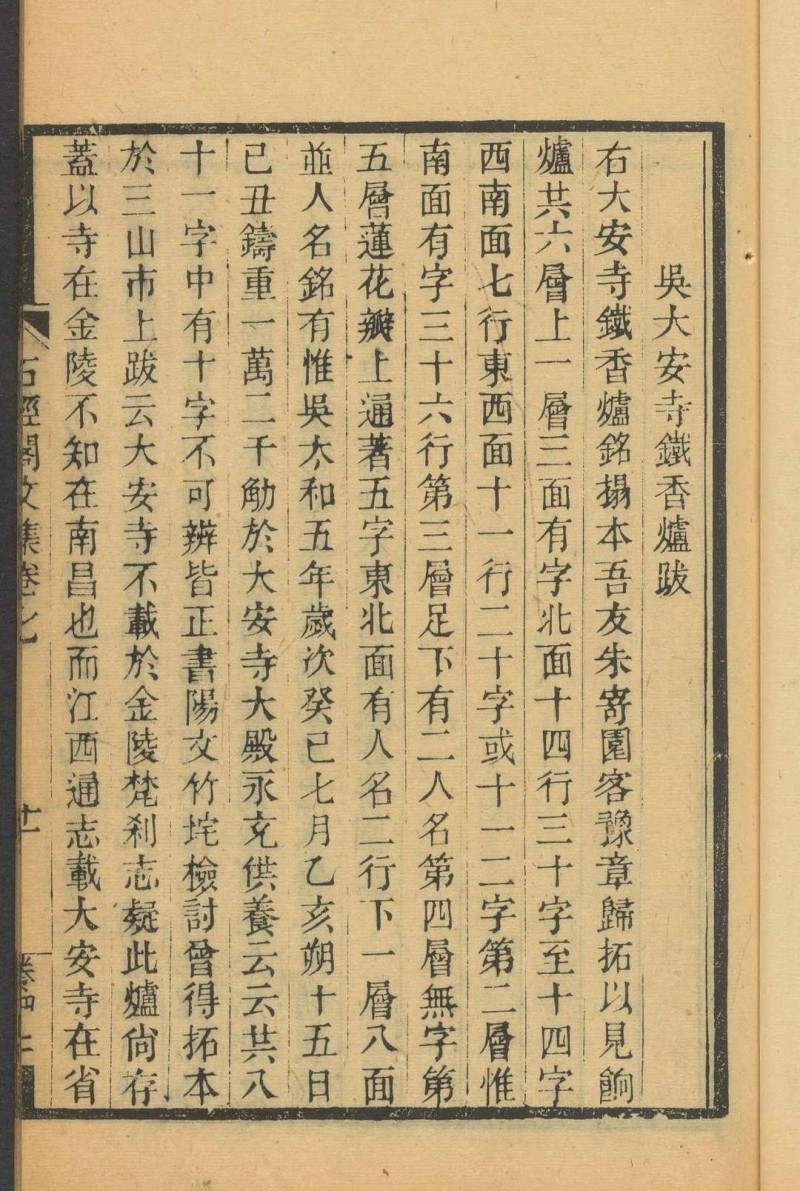 吳大安寺鐵香爐跋
右大安寺鐵香爐銘搨本吾友朱寄園客豫章歸拓以見餉
爐共六層上一層三面有字北面十四行三十字至十四字
西南面七行東西面十一行二十字或十一二字第二層惟
南面有字三十六行第三層足下有二人名第四層無字第
五層蓮花瓣上通著五字東北面有人名二行下一層八面
並人名銘有惟吳太和五年歲次癸巳七月乙亥朔十五日
己丑鑄重一萬二千觔於大安寺大殿永充供養云云共八
十一字中有十字不可辨皆正書陽文竹垞檢討曾得拓本
於三山市上跋云大安寺不載於金陵梵刹志疑此爐尙存
蓋以寺在金陵不知在南昌也而江西通志載大安寺在省
石經閣文集卷七
十一